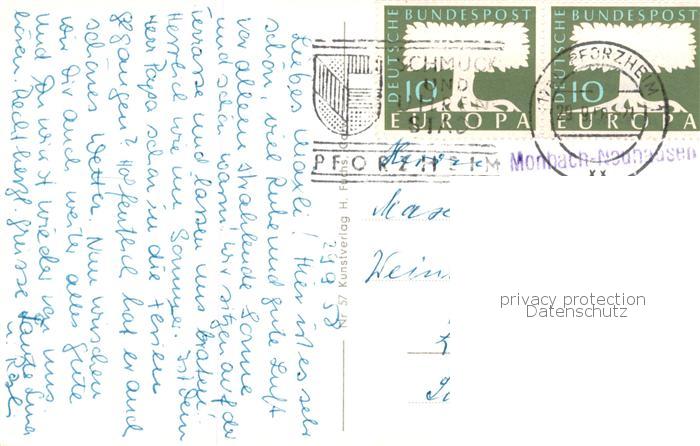 29. 8. 58
Liebes Maxli! Hier ist es sehr
schön, viel Ruhe und gute Luft
vor allem strahlende Sonne
und schön warm. Wir sitzen auf der
Terrasse und lassen uns braten.
Herrlich wie im Sommer. Ist Dein
Herr Papa schon in die Ferien
gegangen? Hoffentlich hat er auch
schönes Wetter. Nun wünschen
wir Dir auch weiter alles Gute
und Du wirst wieder von uns
hören. Recht herzl. Grüsse Tante Lina
u. Rösli
Nr 57 Kunstverlag H. Fuchs,
DEUTSCHE BUNDESPOST
10
EUROPA
DEUTSCHE BUNDESPOST
10
EUROPA
SCHMUCK
UND
UHREN
STADT
PFORZHEIM
PFORZHEIM
Monbach-Neuhausen
privacy protection
Datenschutz